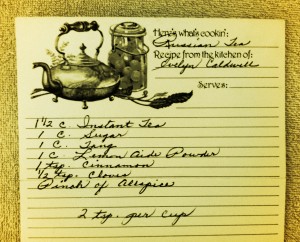 Here's what's cookin': Russian Tea
Recipe from the kitchen of:
Evelyn Caldwell
Serves:
1 1/2 C. Instant Tea
1 C. Sugar
1 C. Tang
1 C Lemon Aide Powder
1 tsp. Cinnamon
1/2 tsp. Cloves
Pinch of Allspice
2 tsp. per Cup